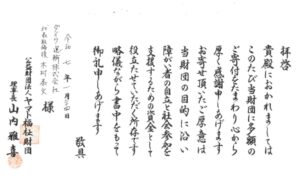 拝啓
貴殿におかれましては
このたび当財団に多額の
ご寄付をたまわり心から
厚く感謝申しあげます
お寄せ頂いたご厚意は
当財団の目的に沿い
障がい者の自立と社会参加を
支援するための資金として
役立たせていただく所存です
略儀ながら書中をもって
御礼申しあげます
敬具
令和七年一月
様
公益財団法人ヤマト福祉財団
理事長 山内雅喜